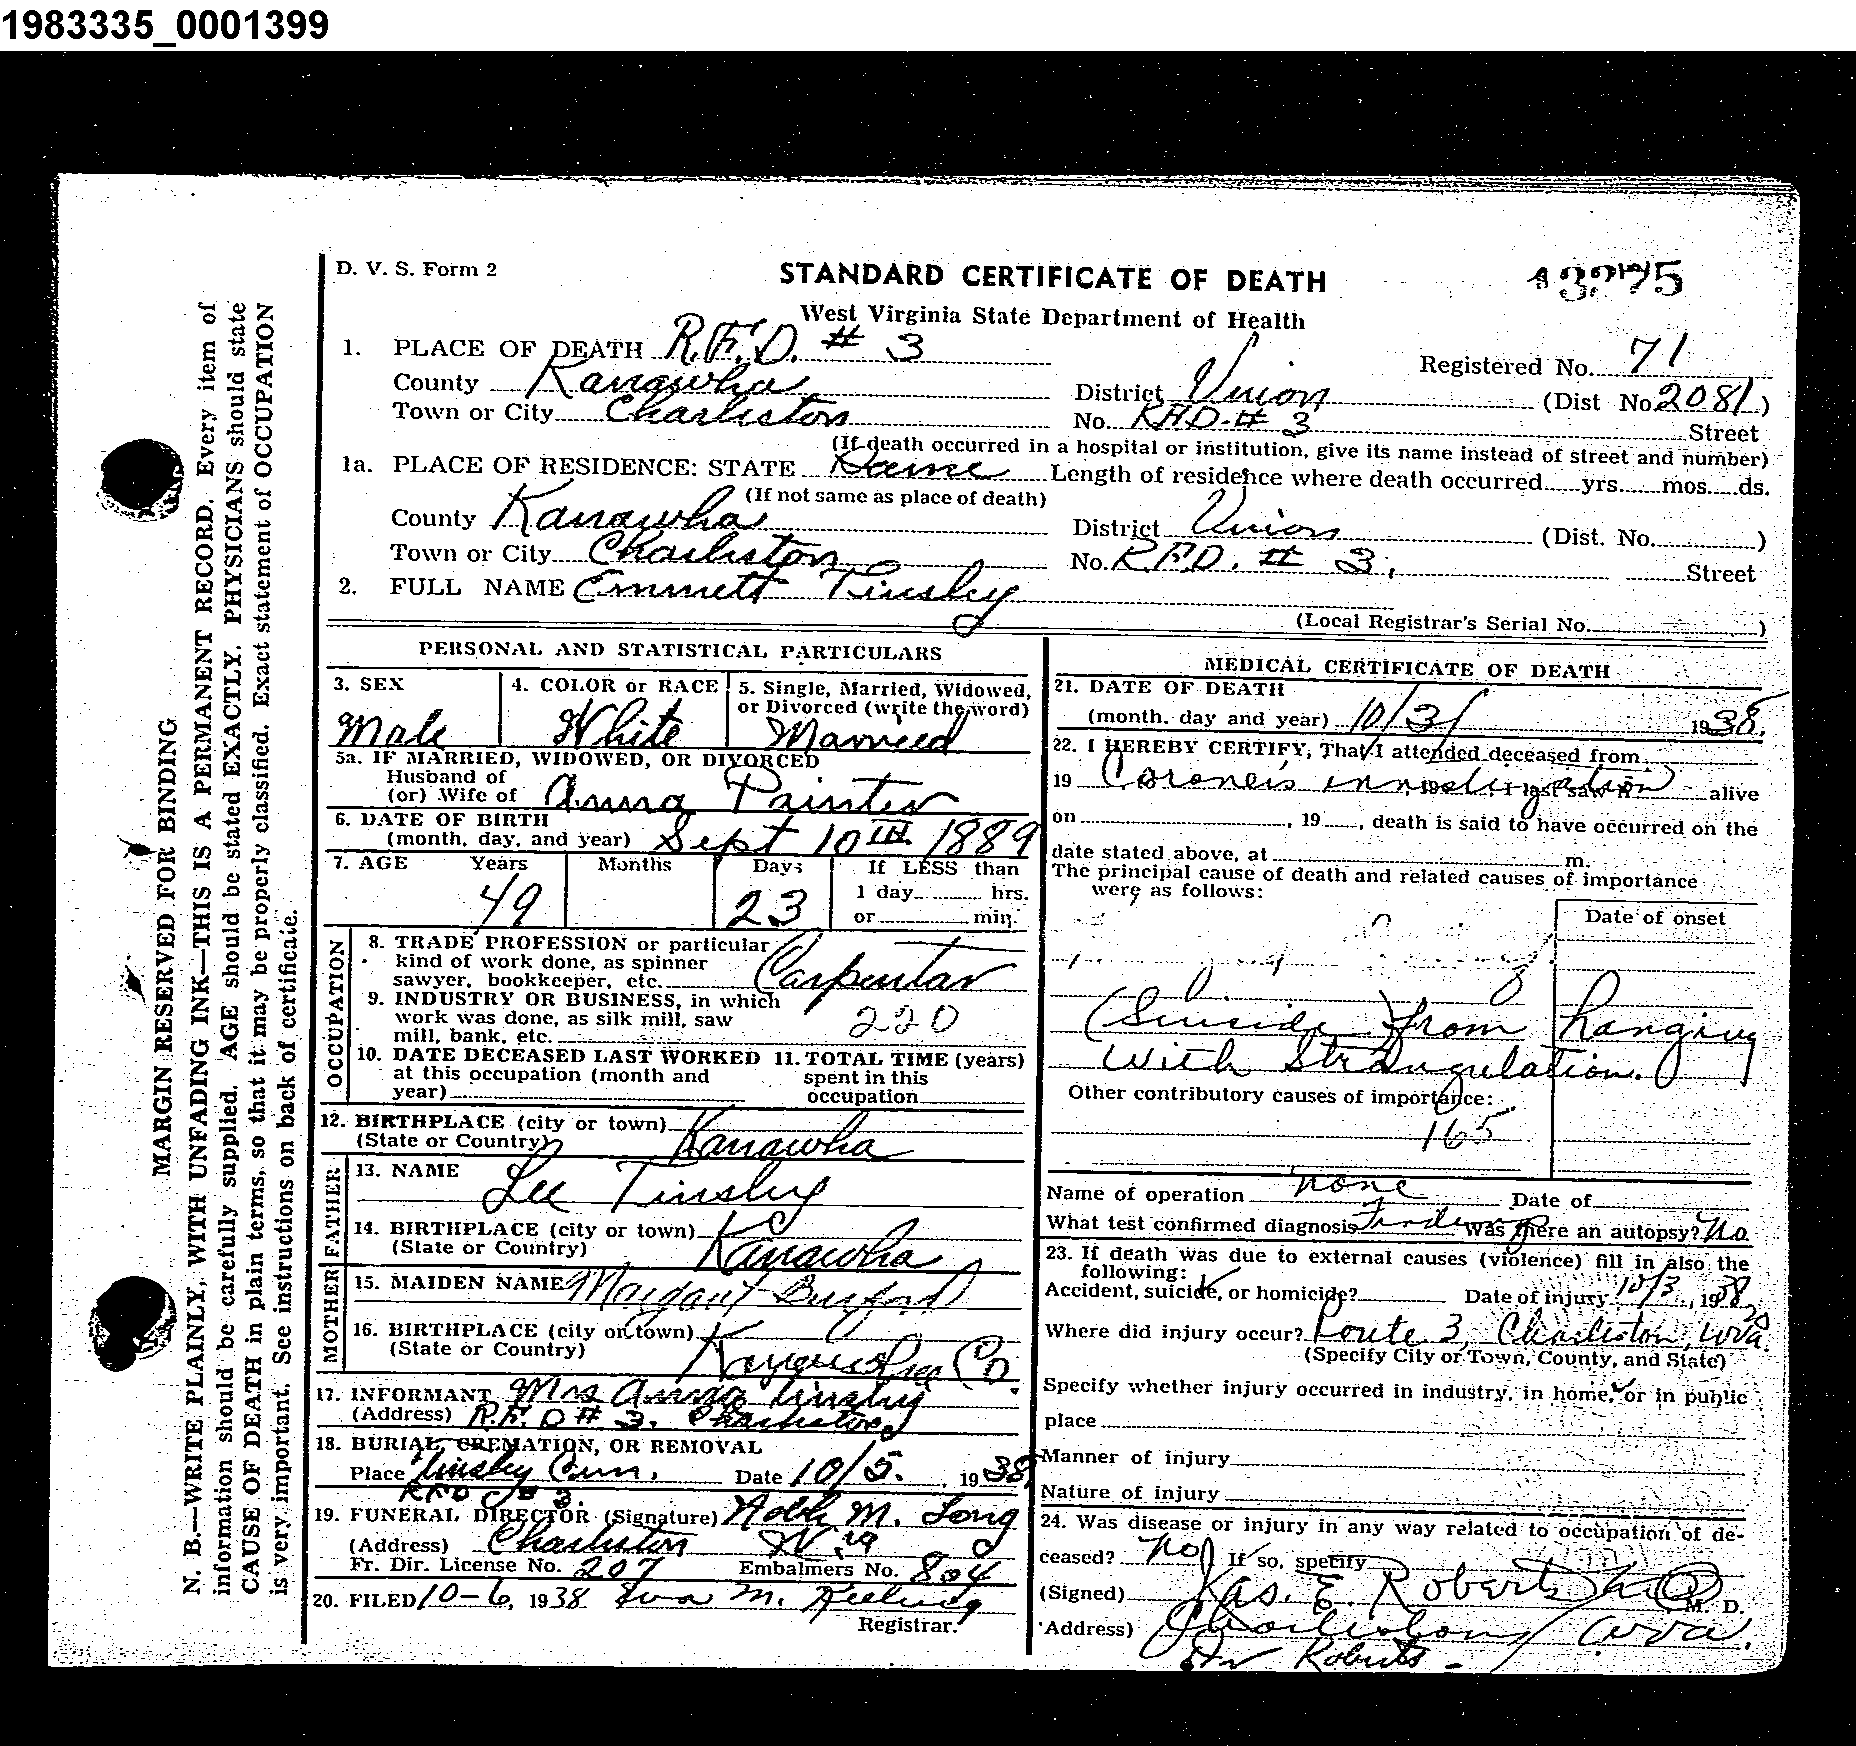 1983335_0001399
D. V. S. Form 2
STANDARD CERTIFICATE OF DEATH
West Virginia State Department of Health
1. PLACE OF DEATH R.F.D. # 3
Registered No. 71
County Kanawha District Union (Dist No. 2081)
Town or City Charleston No. R.F.D. # 3 Street
(If death occurred in a hospital or institution, give its name instead of street and number)
1a. PLACE OF RESIDENCE: STATE Same Length of residence where death occurred yrs. mos. ds.
(If not same as place of death)
County Kanawha District Union (Dist. No. )
Town or City Charleston No. R.F.D. # 3. Street
2. FULL NAME Emmett Tinsley
(Local Registrar's Serial No. )
PERSONAL AND STATISTICAL PARTICULARS
3. SEX
Male
4. COLOR or RACE
White
5. Single, Married, Widowed,
or Divorced (write the word)
Married
5a. IF MARRIED, WIDOWED, OR DIVORCED
Husband of
(or) Wife of Anna Painter
6. DATE OF BIRTH
(month, day, and year) Sept 10TH 1889
7. AGE Years Months Days If LESS than
1 day hrs.
49 23 or min.
OCCUPATION
8. TRADE PROFESSION or particular
kind of work done, as spinner
sawyer, bookkeeper, etc. Carpentar
9. INDUSTRY OR BUSINESS, in which
work was done, as silk mill, saw
mill, bank, etc. 220
10. DATE DECEASED LAST WORKED
at this occupation (month and
year)
11. TOTAL TIME (years)
spent in this
occupation
12. BIRTHPLACE (city or town)
(State or Country) Kanawha
FATHER
13. NAME Lee Tinsley
14. BIRTHPLACE (city or town)
(State or Country) Kanawha
MOTHER
15. MAIDEN NAME Margaret Burford
16. BIRTHPLACE (city or town)
(State or Country) Co.
17. INFORMANT Mrs Anna Tinsley
(Address) R.F.D # 3. Charleston
18. BURIAL, CREMATION, OR REMOVAL
Place Tinsley Cem. Date 10/5. 1938
19. FUNERAL DIRECTOR (Signature) M. Long
(Address) Charleston W.Va
Fr. Dir. License No. 207 Embalmers No. 804
20. FILED 10-6, 1938 M.
Registrar.
MEDICAL CERTIFICATE OF DEATH
21. DATE OF DEATH
(month, day and year) 10/3/ 1938.
22. I HEREBY CERTIFY, That I attended deceased from
19 Coroner's investigation , 19 I last saw h alive
on , 19 , death is said to have occurred on the
date stated above, at m.
The principal cause of death and related causes of importance
were as follows:
Date of onset
(Suicide) from hanging
with Strangulation.
Other contributory causes of importance:
165
Name of operation none Date of
What test confirmed diagnosis Was there an autopsy? No
23. If death was due to external causes (violence) fill in also the
following:
Accident, suicide, or homicide? Date of injury 10/3, 1938
Where did injury occur? Route 3, Charleston, WVa.
(Specify City or Town, County, and State)
Specify whether injury occurred in industry, in home, or in public
place
Manner of injury
Nature of injury
24. Was disease or injury in any way related to occupation of de-
ceased? No If so, specify
(Signed) Jas. E. Roberts M. D.
(Address) Charleston, WVa.
Dr Roberts -
MARGIN RESERVED FOR BINDING
N. B.—WRITE PLAINLY, WITH UNFADING INK—THIS IS A PERMANENT RECORD. Every item of
information should be carefully supplied. AGE should be stated EXACTLY. PHYSICIANS should state
CAUSE OF DEATH in plain terms, so that it may be properly classified. Exact statement of OCCUPATION
is very important. See instructions on back of certificate.